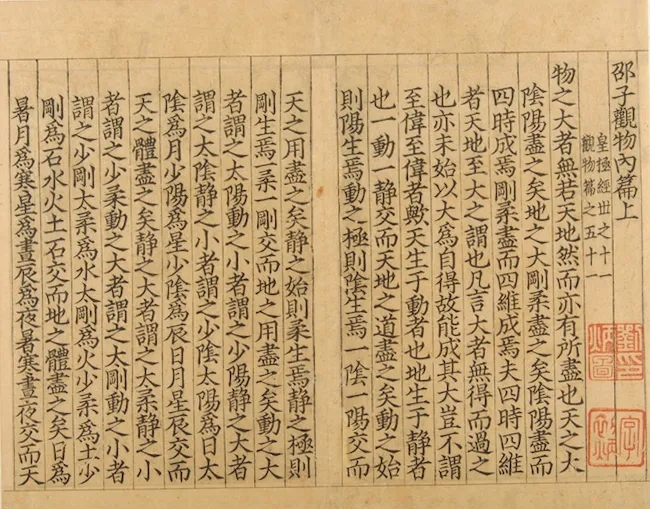 邵子觀物內篇上
皇極經世之十一
觀物篇之五十一
物之大者無若天地然而亦有所盡也天之大
陰陽盡之矣地之大剛柔盡之矣陰陽盡而
四時成焉剛柔盡而四維成焉夫四時四維
者天地至大之謂也凡言大者無得而過之
也亦未始以大爲自得故能成其大豈不謂
至偉至偉者歟天生于動者也地生于靜者
也一動一靜交而天地之道盡之矣動之始
則陽生焉動之極則陰生焉一陰一陽交而
天之用盡之矣靜之始則柔生焉靜之極則
剛生焉一柔一剛交而地之用盡之矣動之大
者謂之太陽動之小者謂之少陽靜之大者
謂之太陰靜之小者謂之少陰太陽爲日太
陰爲月少陽爲星少陰爲辰日月星辰交而
天之體盡之矣靜之大者謂之太柔靜之小
者謂之少柔動之大者謂之太剛動之小者
謂之少剛太柔爲水太剛爲火少柔爲土少
剛爲石水火土石交而地之體盡之矣日爲
暑月爲寒星爲晝辰爲夜暑寒晝夜交而天